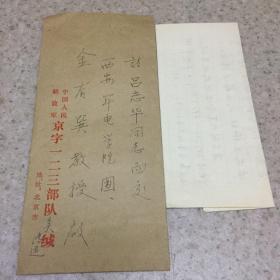 请吕志华同志面交
西安军电学院园、
金有巽教授 启
中国人民
解放军 京字一二三部队 吴 缄
地址：北京市